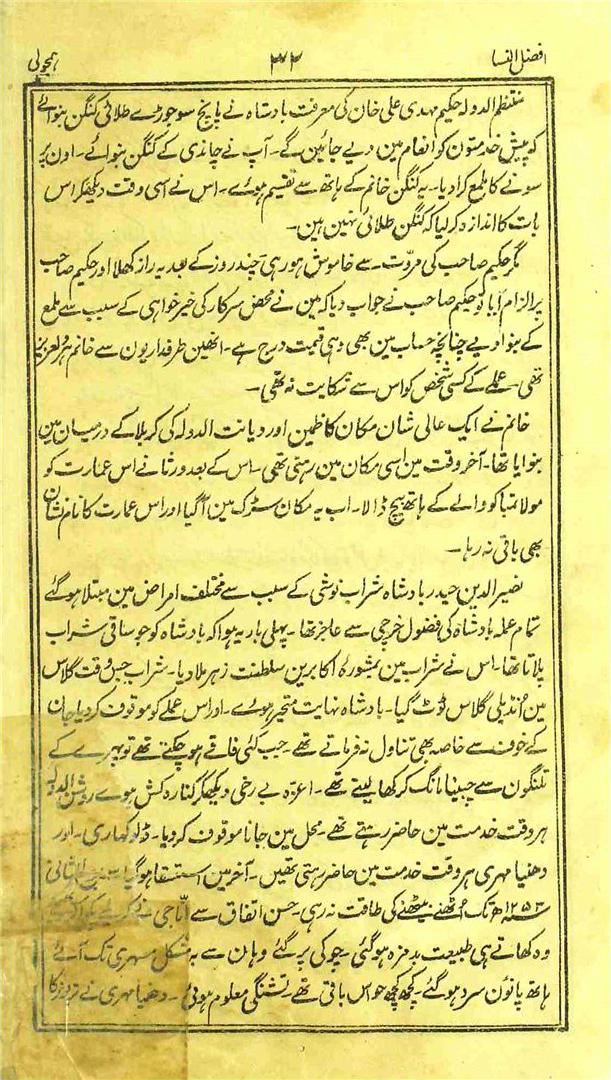 افضل النسا ۳۲ ہمجولی
منتظم الدولہ حکیم مہدی علی خان کی معرفت بادشاہ نے پانچ سو جوڑے طلائی کنگن بنوائے
کہ پیش خدمتون کو انعام مین دیے جائین گے۔ آپ نے چاندی کے کنگن بنوائے۔ اون پر
سونے کا ملمع کرا دیا۔ یہ کنگن خانم کے ہاتھ سے تقسیم ہوئے۔ اس نے اسی وقت دیکھکر اس
بات کا اندازہ کر لیا کہ کنگن طلائی نہین ہین۔
مگر حکیم صاحب کی مروّت سے خاموش ہو رہی۔ چند روز کے بعد یہ راز کھلا اور حکیم صاحب
پر الزام آیا تو حکیم صاحب نے جواب دیا کہ مین نے محض سرکار کی خیر خواہی کے سبب سے ملمع
کے بنوا دیے چنانچہ حساب مین بھی وہی قیمت درج ہے۔ انھین طرفداریون سے خانم ہر دلعزیز
تھی۔ عملے کے کسی شخص کو اس سے شکایت نہ تھی۔
خانم نے ایک عالی شان مکان کاظمین اور دیانت الدولہ کی کربلا کے درمیان مین
بنوایا تھا۔ آخر وقت مین اسی مکان مین رہتی تھی۔ اس کے بعد ورثا نے اس عمارت کو
مولا تمباکو والے کے ہاتھ بیچ ڈالا۔ اب یہ مکان سڑک مین آگیا اور اس عمارت کا نام نشان
بھی باقی نہ رہا۔
نصیر الدین حیدر بادشاہ شراب نوشی کے سبب سے مختلف امراض مین مبتلا ہو گئے
تمام عملہ بادشاہ کی فضول خرچی سے عاجز تھا۔ پہلی بار یہ ہوا کہ بادشاہ کو جو ساقی شراب
پلاتا تھا۔ اس نے شراب مین بمشورہ اکابرین سلطنت زہر ملا دیا۔ شراب جس وقت گلاس
مین اُنڈیلی گلاس ٹوٹ گیا۔ بادشاہ نہایت متحیر ہوے۔ اور اس عملے کو موقوف کر دیا جان
کے خوف سے خاصہ بھی تناول نہ فرماتے تھے۔ جب کئی فاقے ہو چکتے تھے تو پہرے کے
تلنگون سے چبینا مانگ کر کھا لیتے تھے۔ اعزّہ بے رخی دیکھکر کنارہ کش ہوے روشن الدولہ
ہر وقت خدمت مین حاضر رہتے تھے۔ محل مین جانا موقوف کر دیا۔ ڈلو کھاری۔ اور
دھنیا مہری ہر وقت خدمت مین حاضر رہتی تھین۔ آخر مین استسقا ہو گیا ربیع الثانی
۱۲۵۳ھ تک اُٹھنے بیٹھنے کی طاقت نہ رہی۔ حسن اتفاق سے اتّا جی نے
وہ کھاتے ہی طبیعت بدمزہ ہو گئی۔ چوکی پر گئے وہان سے بہ مشکل مسہری تک آئے
ہاتھ پانؤن سرد ہو گئے۔ کچھ کچھ حواس باقی تھے۔ تشنگی معلوم ہوئی۔ دھنیا مہری نے تربوز کا